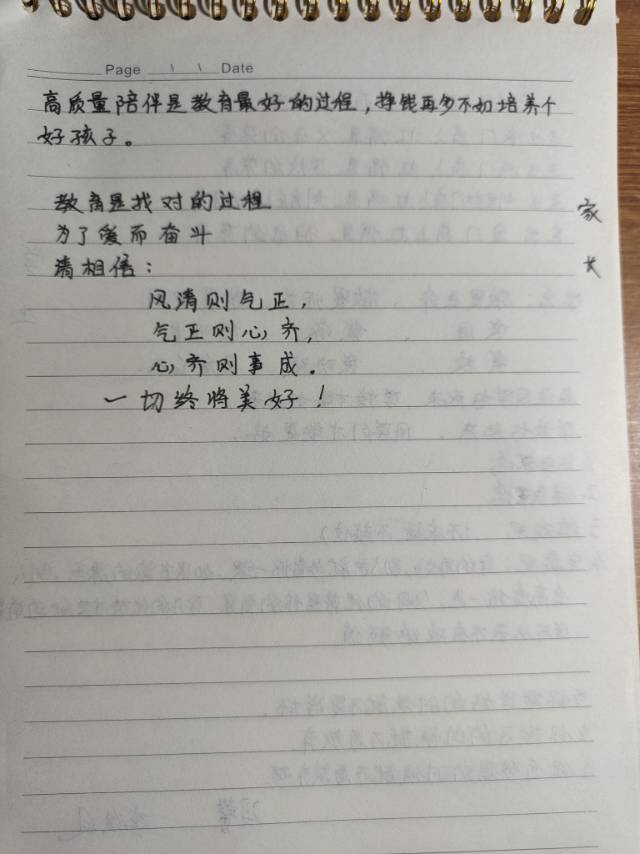 Page Date
高质量陪伴是教育最好的过程，挣钱再多不如培养个
好孩子。
教育是找对的过程
为了爱而奋斗
请相信：
风清则气正，
气正则心齐，
心齐则事成．
一切终将美好！
家
长